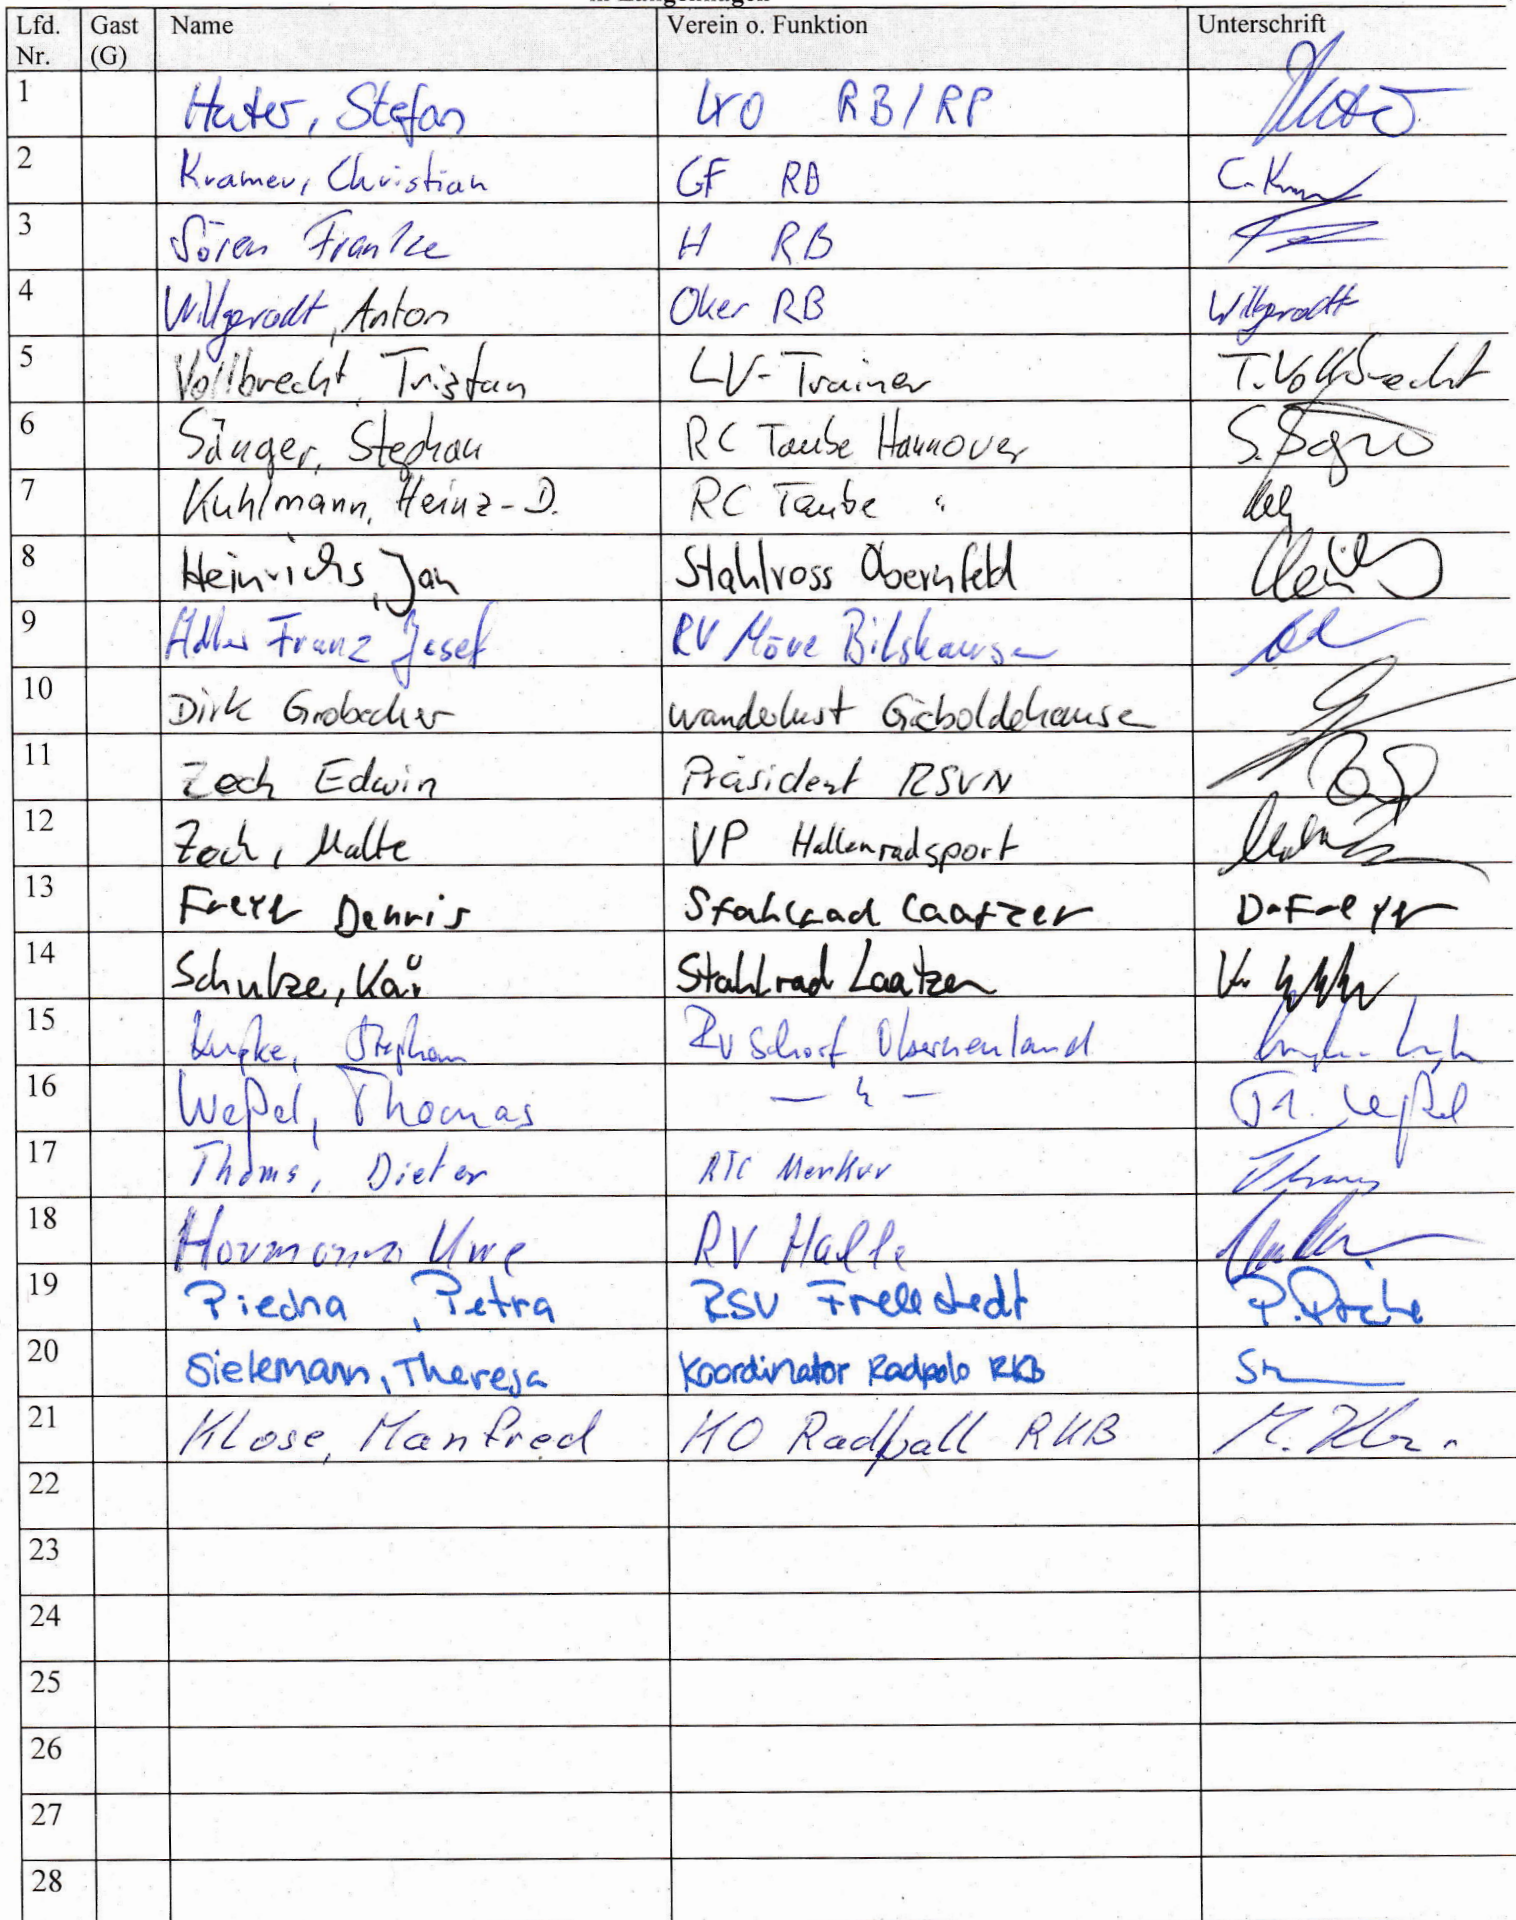 Lfd. Nr. Gast (G) Name Verein o. Funktion Unterschrift
1 Hater, Stefan KO RB/RP
2 Kramer, Christian GF RB C. K
3 Sören Franke H RB
4 Willgerodt, Anton Oker RB Willgerodt
5 Vollbrecht, Tristan LV-Trainer T. Vollbrecht
6 Sänger, Stephan RC Taube Hannover S.
7 Kuhlmann, Heinz-D. RC Taube "
8 Heinrichs, Jan Stahlross Obernfeld
9 Adler Franz Josef RV Möve Bilshausen
10 Dirk Grobecker Wanderlust Gieboldehausen
11 Zoch Edwin Präsident RSVN
12 Zoch, Malte VP Hallenradsport
13 Freyer Dennis Stahlrad Laatzen D. Freyer
14 Schulze, Kai Stahlrad Laatzen
15 Kupke, Stephan RV Schorf Oberneuland
16 Weßel, Thomas — " — Th. Weßel
17 Thoms, Dieter RTC Merkur Thoms
18 Hormann Uwe RV Halle
19 Petra RSV Frellstedt P.
20 Sielemann, Theresa Koordinator Radpolo RKB
21 Klose, Manfred KO Radball RKB M.
22
23
24
25
26
27
28